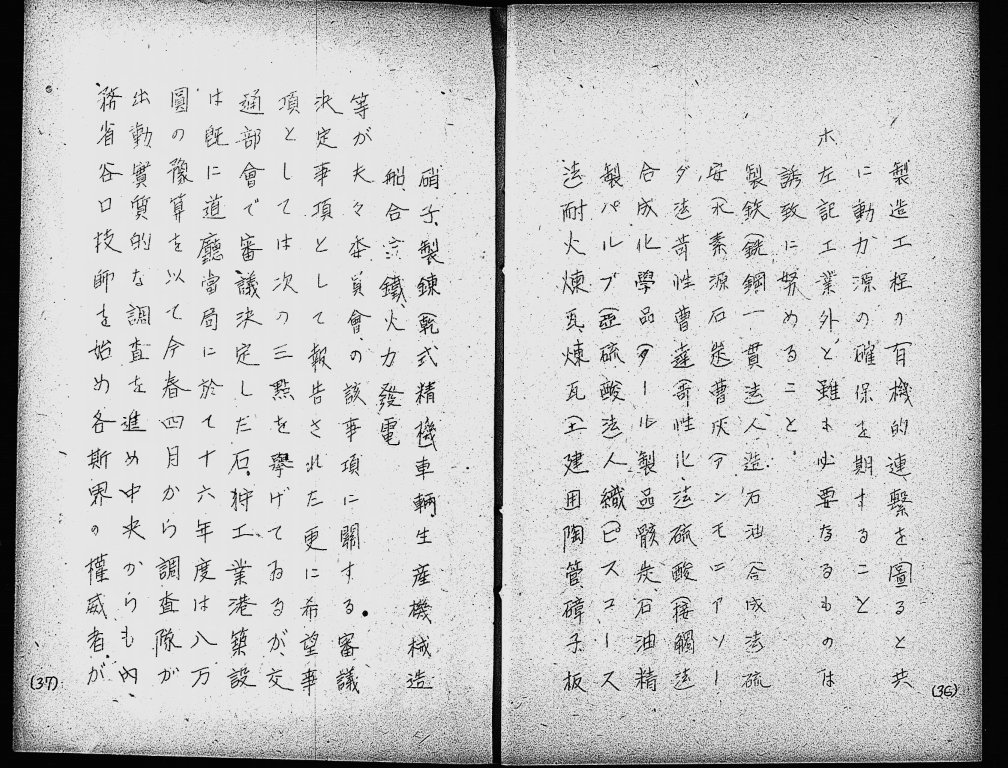 製造工程の有機的連繫を圖ると共
に動力源の確保を期すること
ホ 左記工業外と雖も必要なるものは
誘致に努めること
製鉄(銑鋼一貫法人造石油合成法硫
安(水素源石炭曹灰アンモニアソー
ダ法苛性曹達苛性化法硫酸(接觸法
合成化學品(タール製品骸炭石油精
製パルプ(亞硫酸法)人織(ビスコース
法耐火煉瓦煉瓦(土建用陶管碍子板
(36)
硝子製錬(乾式精機車輌生産機械造
船合 鐵火力發電
等が夫々委員會の該事項に關する審議
決定事項として報告された更に希望事
項としては次の三點を擧げてゐるが交
通部會で審議決定した石狩工業港築設
は既に道廳當局に於て十六年度は八万
圓の豫算を以て今春四月から調査隊が
出動實質的な調査を進め中央からも内
務省谷口技師を始め各斯界の權威者が
(37)